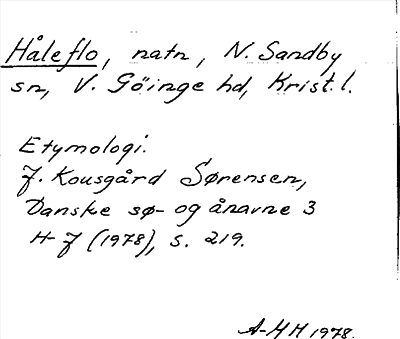 Håleflo, natn, N. Sandby
sn, V. Göinge hd, Krist. l.
Etymologi.
J. Kousgård Sørensen,
Danske sø- og ånavne 3
H-J (1978), s. 219.
A-MH 1978.